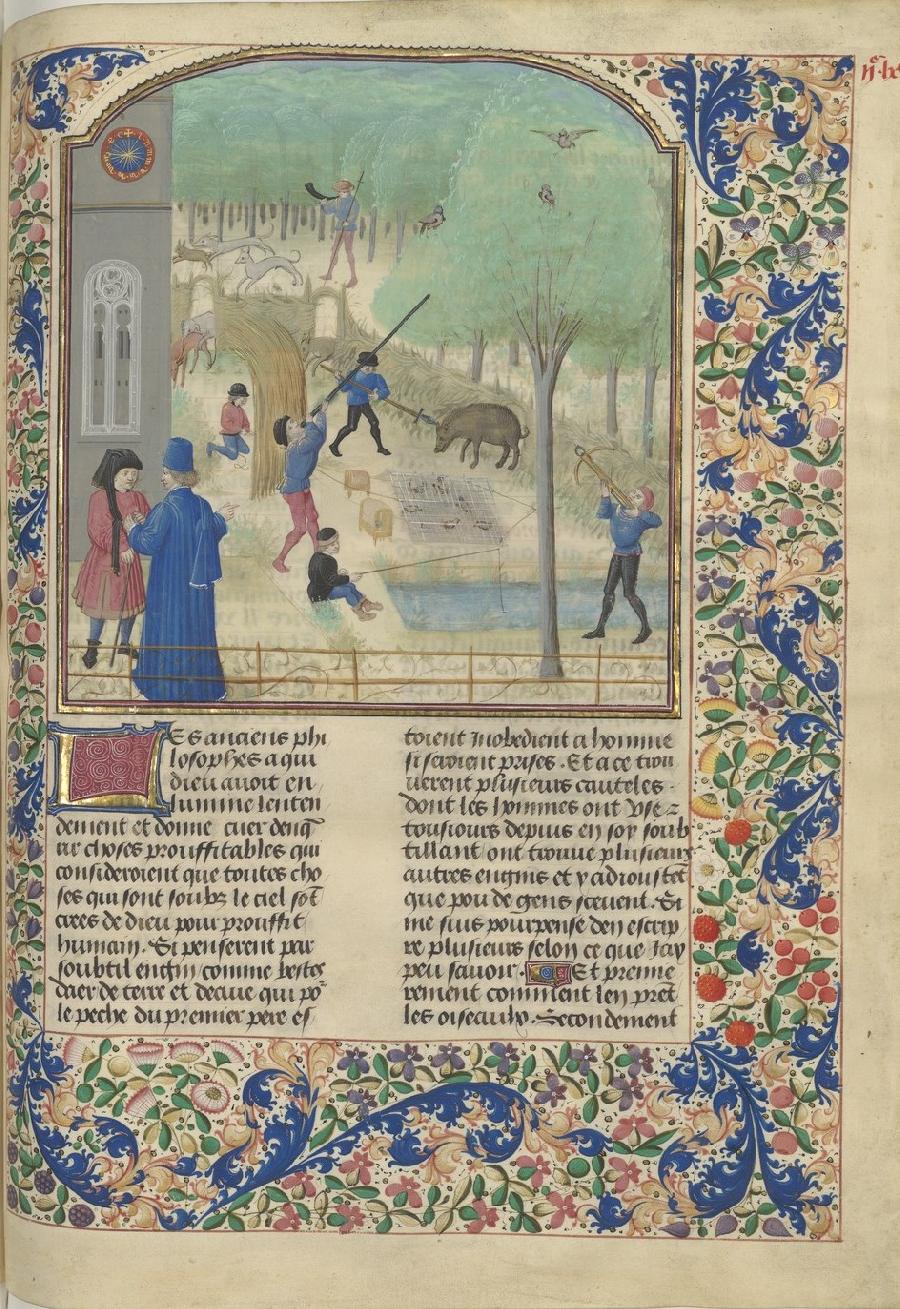 Es anciens phi
losophes a qui
dieu auoit en
lumine lenten
dement et donne cuer denq̄
rir choses prouffitables qui
consideroient que toutes cho
ses qui sont soubz le ciel sōt
crees de dieu pour prouffit
humain. Si penserent par
soubtil engin comme bestes
daer de terre et deaue qui po
le peche du premier pere es
toient inobedient a homme
si seroient prises. Et a ce trou
uerent plusieurs cauteles
dont les hommes ont vse z
tousiours depuis en soy soub
tillant ont trouue plusieurs
autres engins et y adioustet
que pou de gens scèuent. Si
me suis pourpense den escrip
re plusieurs selon ce que Jay
peu sauoir. Et premie
rement comment len prēt
les oiseaulx. Secondement